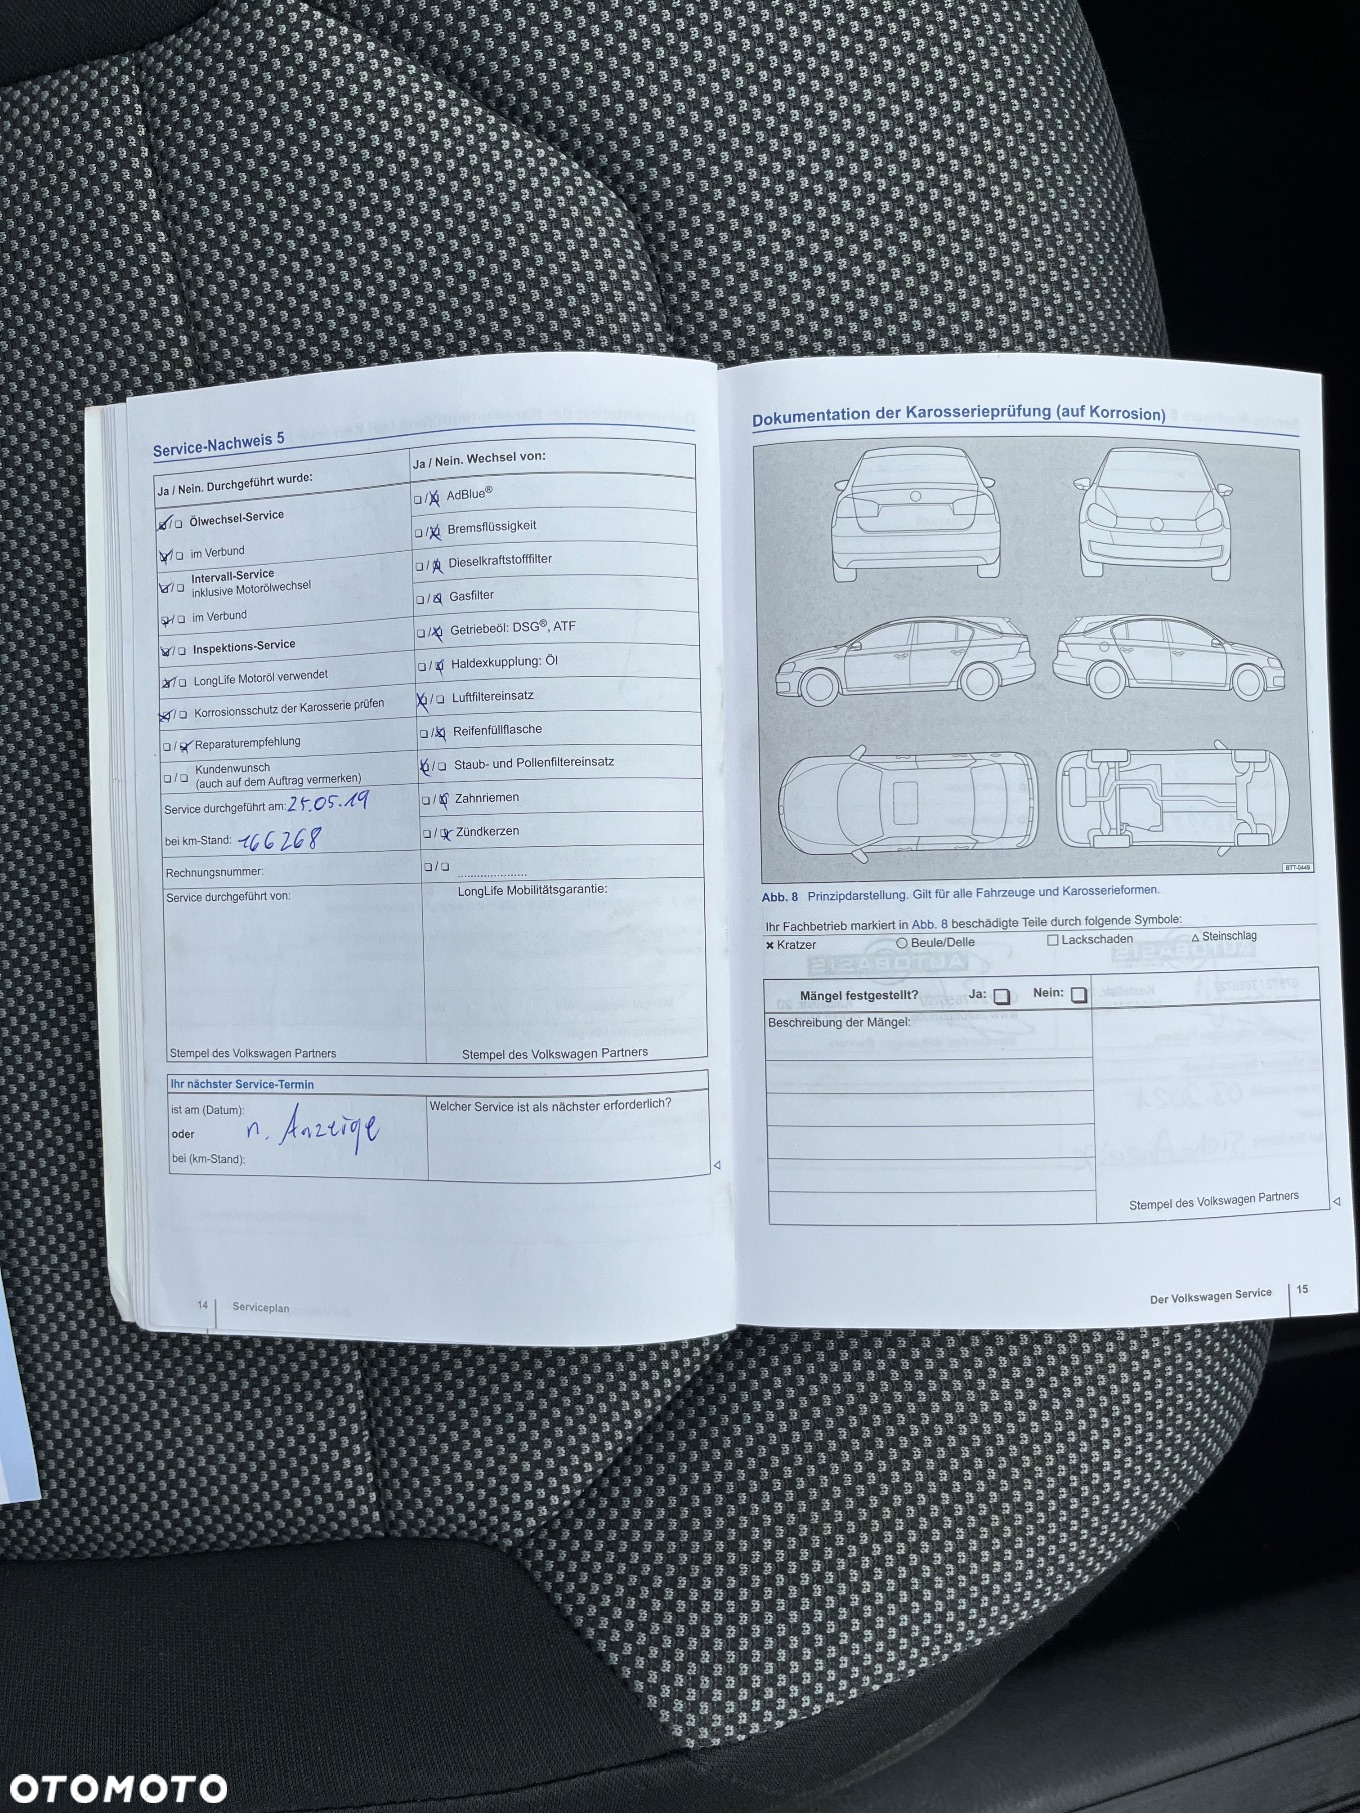 Service-Nachweis 5
Ja / Nein. Durchgeführt wurde:
Ölwechsel-Service
im Verbund
Intervall-Service
inklusive Motorölwechsel
im Verbund
Inspektions-Service
LongLife Motoröl verwendet
Korrosionsschutz der Karosserie prüfen
Reparaturempfehlung
Kundenwunsch
(auch auf dem Auftrag vermerken)
Service durchgeführt am: 25.05.19
bei km-Stand: 166268
Rechnungsnummer:
Service durchgeführt von:
Stempel des Volkswagen Partners
Ja / Nein. Wechsel von:
AdBlue®
Bremsflüssigkeit
Dieselkraftstofffilter
Gasfilter
Getriebeöl: DSG®, ATF
Haldexkupplung: Öl
Luftfiltereinsatz
Reifenfüllflasche
Staub- und Pollenfiltereinsatz
Zahnriemen
Zündkerzen
LongLife Mobilitätsgarantie:
Stempel des Volkswagen Partners
Ihr nächster Service-Termin
ist am (Datum):
oder n. Anzeige
bei (km-Stand):
Welcher Service ist als nächster erforderlich?
14 Serviceplan
Dokumentation der Karosserieprüfung (auf Korrosion)
BTT-0449
Abb. 8 Prinzipdarstellung. Gilt für alle Fahrzeuge und Karosserieformen.
Ihr Fachbetrieb markiert in Abb. 8 beschädigte Teile durch folgende Symbole:
Kratzer Beule/Delle Lackschaden Steinschlag
Mängel festgestellt? Ja: Nein:
Beschreibung der Mängel:
Stempel des Volkswagen Partners
Der Volkswagen Service 15
OTOMOTO